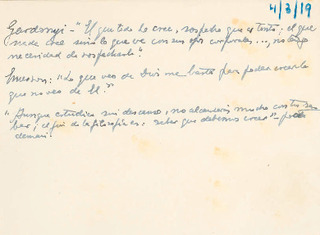 4/3/19
Gardonyi - "El que todo lo cree, sospecho que es tonto; el que
nada cree sino lo que ve con sus ojos corporales..., no tengo
necesidad de sospecharlo".
Emerson: "Lo que veo de Dios me basta para poder creer lo
que no veo de El."
"Aunque estudies sin descanso, no alcanzarás mucho
ber; el fin de la filosofía es: saber que debemos creer"